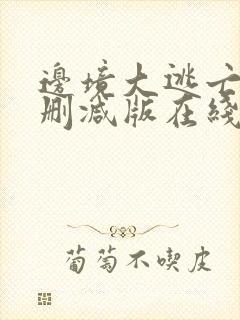 邊境大逃亡
刪減版在綫
葡萄不喫皮